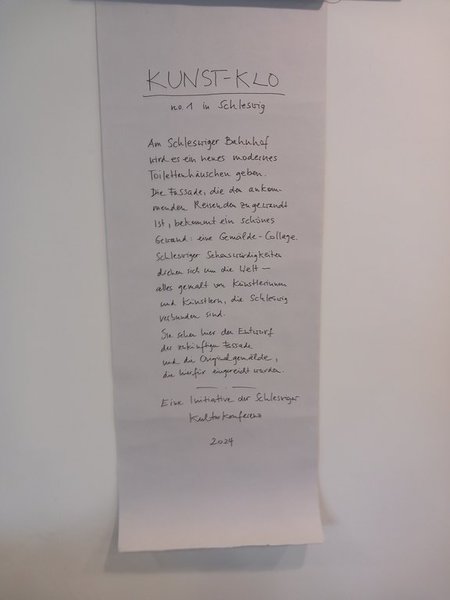 KUNST-KLO
no. 1 in Schleswig
Am Schleswiger Bahnhof
wird es ein neues modernes
Toilettenhäuschen geben.
Die Fassade, die den ankom-
menden Reisenden zugewandt
ist, bekommt ein schönes
Gewand: eine Gemälde-Collage.
Schleswiger Sehenswürdigkeiten
drehen sich um die Welt –
alles gemalt von Künstlerinnen
und Künstlern, die Schleswig
verbunden sind.
Sie sehen hier den Entwurf
der zukünftigen Fassade
und die Originalgemälde,
die hierfür eingereicht wurden.
Eine Initiative der Schleswiger
Kulturkonferenz
2024